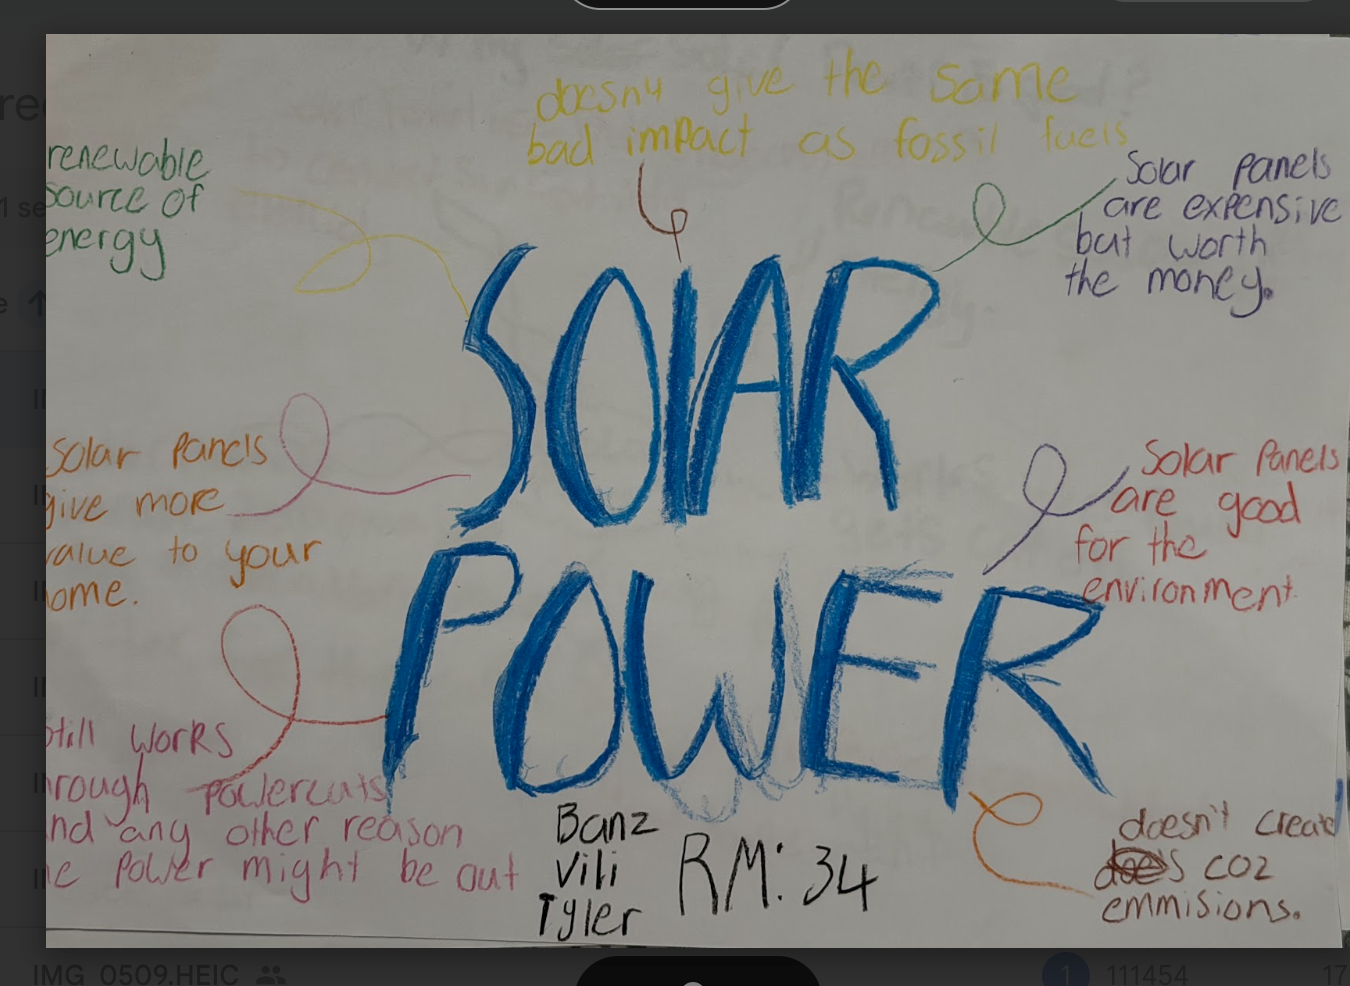 doesn4 give the same
bad impact as fossil fuels
renewable
source of
energy
Solar panels
are expensive
but worth
the money.
SOLAR
POWER
Solar Panels
give more
value to your
ome.
Solar Panels
are good
for the
environment.
still works
hrough powercuts
nd any other reason
he Power might be out
Banz
Vili
Tyler
RM: 34
doesn't create
CO2
emmisions.
IMG_0509.HEIC
1
111454
17